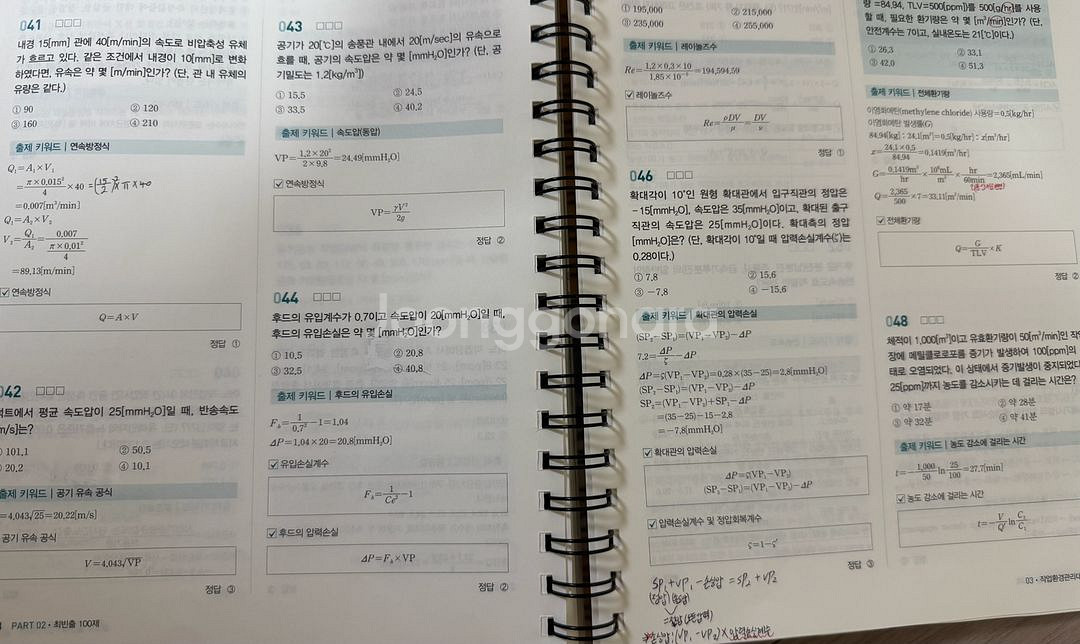 041 □□□
내경 15[mm] 관에 40[m/min]의 속도로 비압축성 유체
가 흐르고 있다. 같은 조건에서 내경이 10[mm]로 변화
하였다면, 유속은 약 몇 [m/min]인가? (단, 관 내 유체의
유량은 같다.)
① 90 ② 120
③ 160 ④ 210
출제 키워드 | 연속방정식
Q₁=A₁×V₁
=π×0.015²/4×40 =(15/2)²×π×40
=0.007[m³/min]
Q₁=A₂×V₂
V₂=Q₁/A₂=0.007/(π×0.01²/4)
=89.13[m/min]
☑ 연속방정식
Q=A×V
정답 ①
042 □□□
덕트에서 평균 속도압이 25[mmH₂O]일 때, 반송속도
[m/s]는?
① 101.1 ② 50.5
③ 20.2 ④ 10.1
출제 키워드 | 공기 유속 공식
=4.043√25=20.22[m/s]
공기 유속 공식
V=4.043√VP
정답 ③
PART 02 • 최빈출 100제
043 □□□
공기가 20[℃]의 송풍관 내에서 20[m/sec]의 유속으로
흐를 때, 공기의 속도압은 약 몇 [mmH₂O]인가? (단, 공
기밀도는 1.2[kg/m³])
① 15.5 ② 24.5
③ 33.5 ④ 40.2
출제 키워드 | 속도압(동압)
VP=1.2×20²/2×9.8=24.49[mmH₂O]
☑ 연속방정식
VP=γV²/2g
정답 ②
044 □□□
후드의 유입계수가 0.7이고 속도압이 20[mmH₂O]일 때,
후드의 유입손실은 약 몇 [mmH₂O]인가?
① 10.5 ② 20.8
③ 32.5 ④ 40.8
출제 키워드 | 후드의 유입손실
Fₕ=1/0.7²−1=1.04
ΔP=1.04×20=20.8[mmH₂O]
☑ 유입손실계수
Fₕ=1/Ce²−1
☑ 후드의 압력손실
ΔP=Fₕ×VP
정답 ②
① 195,000 ② 215,000
③ 235,000 ④ 255,000
출제 키워드 | 레이놀즈수
Re=1.2×0.3×10/1.85×10⁻⁵=194,594.59
☑ 레이놀즈수
Re=ρDV/μ=DV/ν
정답 ①
046 □□□
확대각이 10°인 원형 확대관에서 입구직관의 정압은
−15[mmH₂O], 속도압은 35[mmH₂O]이고, 확대된 출구
직관의 속도압은 25[mmH₂O]이다. 확대측의 정압
[mmH₂O]은? (단, 확대각이 10°일 때 압력손실계수(ζ)는
0.28이다.)
① 7.8 ② 15.6
③ −7.8 ④ −15.6
출제 키워드 | 확대관의 압력손실
(SP₂−SP₁)=(VP₁−VP₂)−ΔP
7.2=ΔP/ζ−ΔP
ΔP=ζ(VP₁−VP₂)=0.28×(35−25)=2.8[mmH₂O]
(SP₂−SP₁)=(VP₁−VP₂)−ΔP
SP₂=(VP₁−VP₂)+SP₁−ΔP
=(35−25)−15−2.8
=−7.8[mmH₂O]
☑ 확대관의 압력손실
ΔP=ζ(VP₁−VP₂)
(SP₂−SP₁)=(VP₁−VP₂)−ΔP
☑ 압력손실계수 및 정압회복계수
ζ=1−ζ′
정답 ③
SP₁+VP₁−손실압=SP₂+VP₂
(정압)(동압)
※손실압:(VP₁−VP₂)×압력손실계수
량=84.94, TLV=500[ppm])를 500[g/hr]를 사용
할 때, 필요한 환기량은 약 몇 [m³/min]인가? (단,
안전계수는 7이고, 실내온도는 21[℃]이다.)
① 26.3 ② 33.1
③ 42.0 ④ 51.3
출제 키워드 | 전체환기량
이염화메탄(methylene chloride) 사용량=0.5[kg/hr]
이염화메탄 발생률(G)
84.94[kg] : 24.1[m³]=0.5[kg/hr] : x[m³/hr]
x=24.1×0.5/84.94=0.1419[m³/hr]
G=0.1419m³/hr×10⁶mL/m³×hr/60min=2,365[mL/min]
Q=2,365/500×7=33.11[m³/min]
☑ 전체환기량
Q=G/TLV×K
정답 ②
048 □□□
체적이 1,000[m³]이고 유효환기량이 50[m³/min]인 작
장에 메틸클로로포름 증기가 발생하여 100[ppm]의
태로 오염되었다. 이 상태에서 증기발생이 중지되었다
25[ppm]까지 농도를 감소시키는 데 걸리는 시간은?
① 약 17분 ② 약 28분
③ 약 32분 ④ 약 41분
출제 키워드 | 농도 감소에 걸리는 시간
t=−1,000/50 ln 25/100=27.7[min]
☑ 농도 감소에 걸리는 시간
t=−V/Q′ ln C₂/C₁
03 • 작업환경관리대